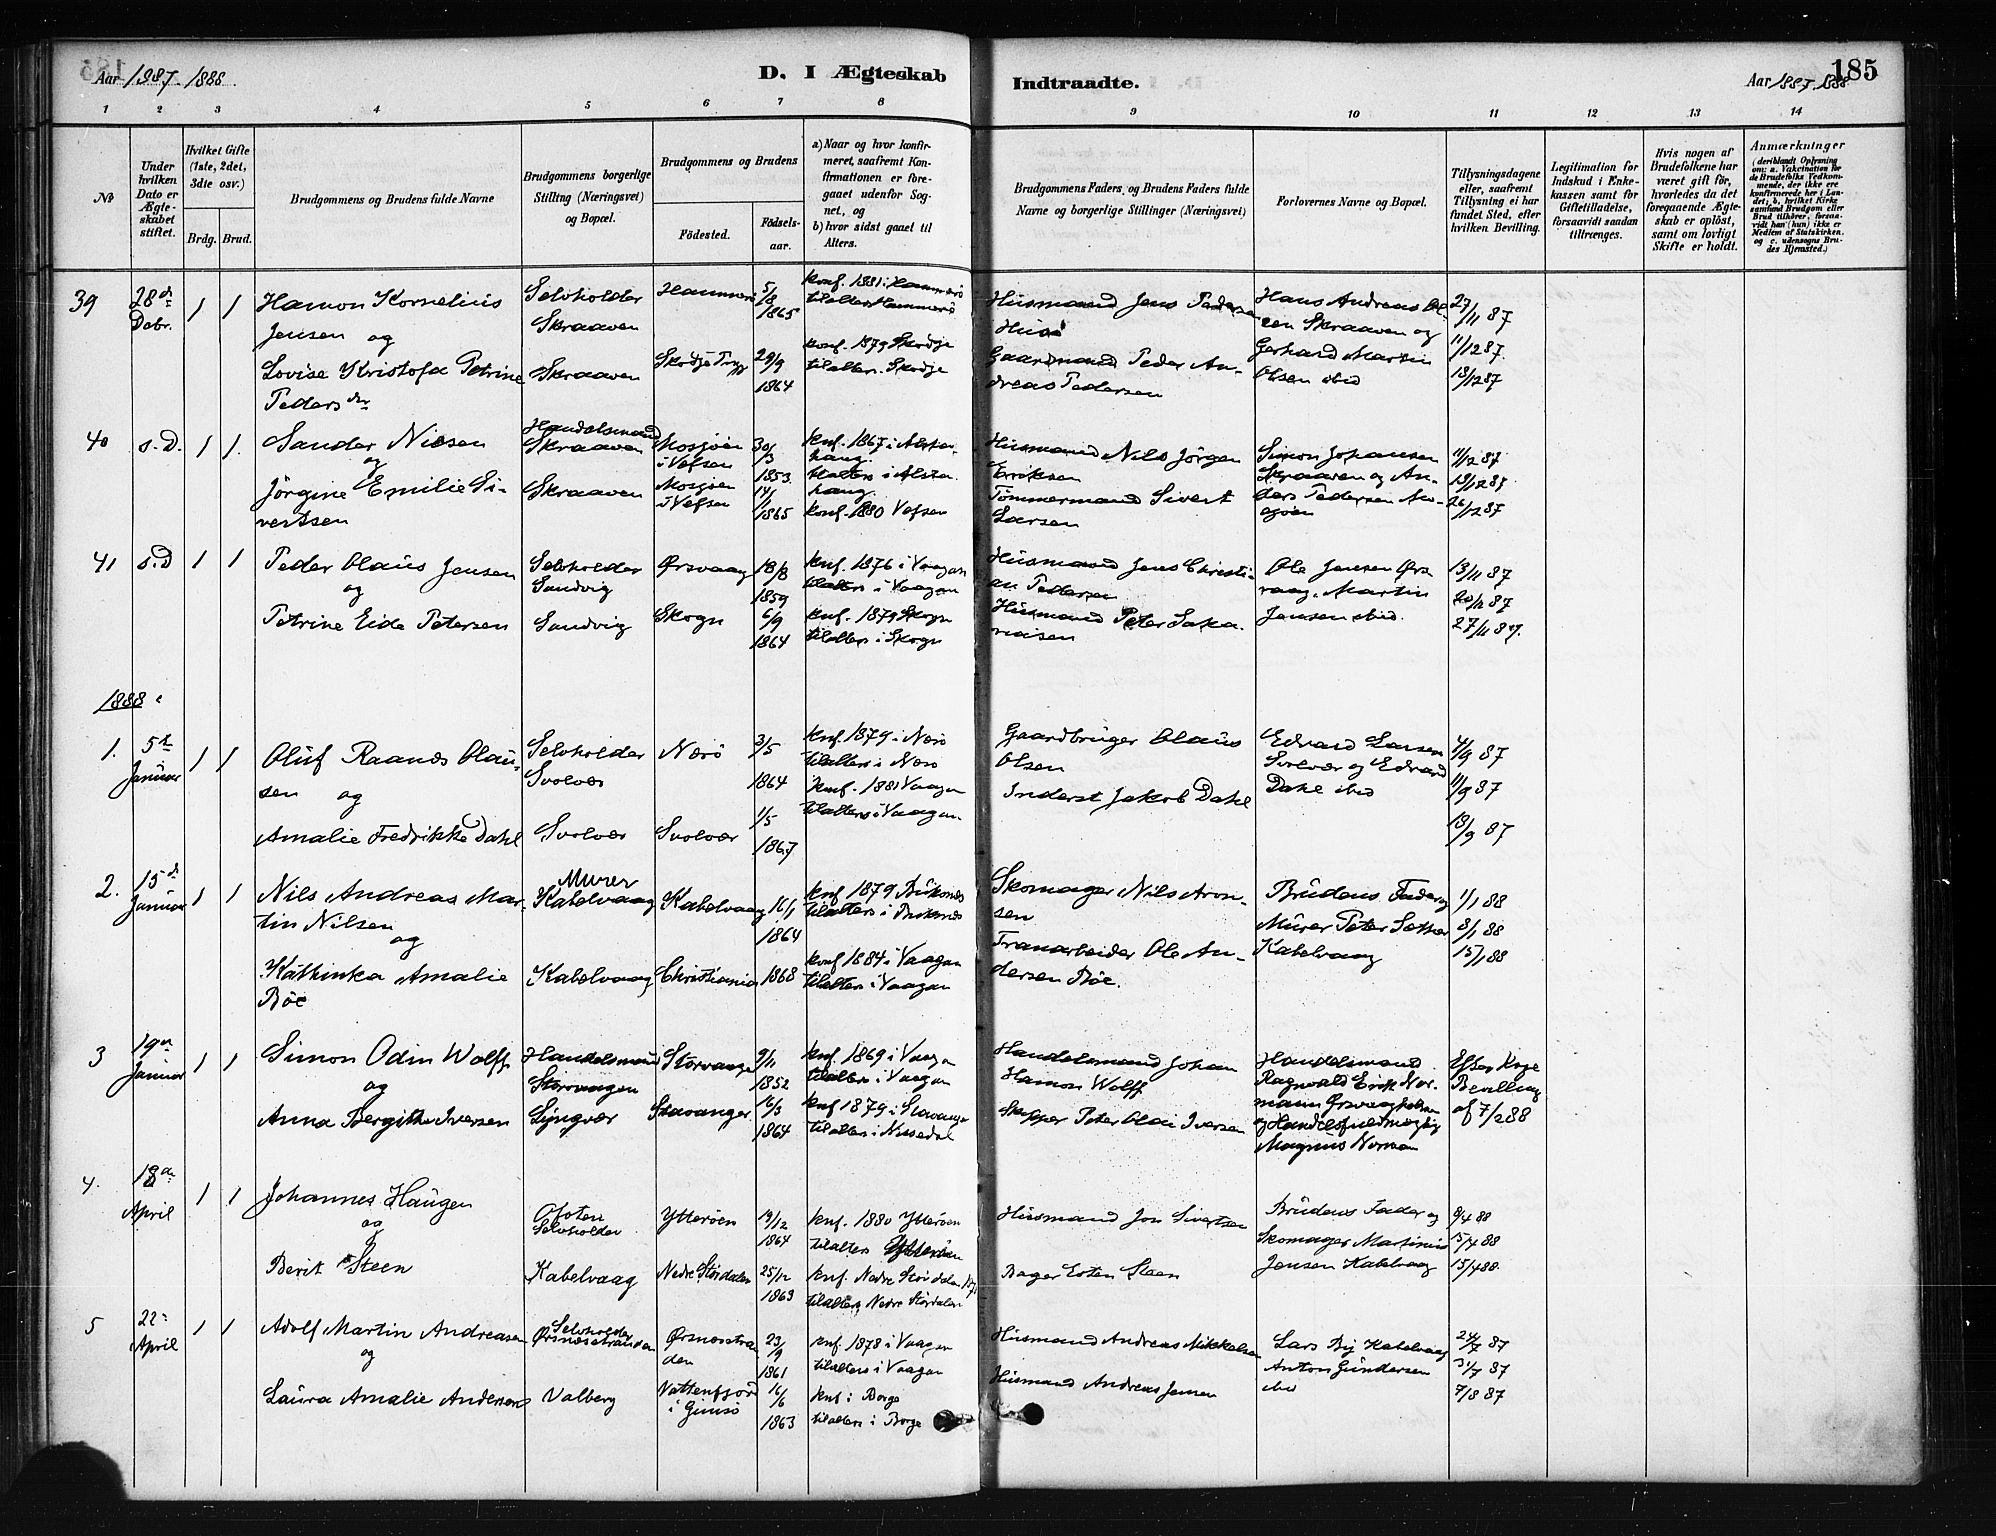 Aar 1887-1888.
D. I Ægteskab
Indtraadte.
Aar 1887. 1888
185
1 2 3 4 5 6 7 8 9 10 11 12 13 14
No
Under hvilken Dato er Ægteskabet stiftet.
Hvilket Gifte (1ste, 2det, 3die osv.)
Brdg. Brud.
Brudgommens og Brudens fulde Navne
Brudgommens borgerlige Stilling (Næringsvei) og Bopæl.
Brudgommens og Brudens
Fødested.
Fødselsaar.
a) Naar og hvor konfirmeret, saafremt Konfirmationen er foregaaet udenfor Sognet, og
b) hvor sidst gaaet til Alters.
Brudgommens Faders og Brudens Faders fulde Navne og borgerlige Stillinger (Næringsvei)
Forlovernes Navne og Bopæl.
Tillysningsdagene eller, saafremt Tillysning ei har fundet Sted, efter hvilken Bevilling.
Legitimation for Indskud i Enkekassen samt for Giftetilladelse, forsaavidt saadan tiltrænges.
Hvis nogen af Brudefolkene har været gift før, hvorledes da det foregaaende Ægteskab er opløst, samt om lovligt Skifte er holdt.
Anmærkninger
(deriblandt Oplysning om: a. Vakcination for de Brudefolks Vedkommende, der ikke ere konfirmerede her i Landet; b. hvilket Kirkesamfund Brudgom eller Brud tilhører, forsaavidt han (hun) ikke er Medlem af Statskirken, og c. udensogns Brudes Hjemsted.)
39 28de Debr. 1 1
Hamon Kornelius
Jensen og
Lovise Kristofa Petrine
Pedersdtr
Selvholder
Skraaven
Skraaven
Hammerö
5/8
1865
29/9
1864
konf. 1881 i Hammerö
tilalters Hammerö
konf. 1879 Skodje
tilalters. Skodje
Husmand Jens Pedersen
Gaardmand Peder An-
dreas Pedersen
Hans Andreas Ol-
sen Skraaven og
Gerhard Martin
Olsen ibid
27/11 87
11/12 87.
18/12 87
40 s.D. 1 1.
Sander Nilsen
og
Jörgine Emilie Si-
vertsen
Handelsmand
Skraaven
Skraaven
Mosjøen
i Vefsen
Mosjøen
i Vefsen
30/3
1853.
14/1
1865
knf. 1867 i Alsta-
haug.
tilalters i Alsta-
haug
konf. 1880 Vefsen
Husmand Nils Jörgen
Eriksen
Tømmermand Sivert
Larsen
Simon Johansen
Skraaven og An-
ders Pedersen
11/12 87
18/12 87
26/12 87
41 s.D 1 1
Peder Olaus Jensen
og
Petrine Eide Petersen
Selvholder
Sandvig
Sandvig
Ørsvaag
Skogn
18/8
1859
6/9
1864
knf. 1876 i Vaagan
tilalters i Vaagan
knf. 1879 Skogn
tilalters i Skogn
Husmand Jens Christi-
an Pedersen
Husmand Peter Saka-
riasen
Ole Jensen Ørs-
vaag. Martin
Jensen ibid.
13/11 87
20/11 87
27/11 87.
1888
1. 5te Januar 1 1
Oluf Raanæs Olau-
sen og
Amalie Fredrikke Dahl
Selvholder
Svolvær
Svolvær
Nærö
Svolvær
3/5
1864
1/5
1867
knf. 1879 i Nærö
tilalters i Nærö
knf. 1881 Vaagan
tilalters i Vaagan.
Gaardbruger Olaus
Olsen
Inderst Jakob Dahl
Edvard Larsen
Svolvær og Edvard
Dahl ibid
4/9 87
11/9 87
18/9 87
2. 15de Januar 1 1
Nils Andreas Mar-
tin Nilsen
og
Kathinka Amalie
Böe
Murer
Kabelvaag
Kabelvaag
Kabelvaag
Christiania
16/1
1864
1868
knf 1879 Buksnes
tilalters i Buksnæs
konf 1884 i Vaagan
tilalters i Vaagan
Skomager Nils Aron-
sen
Tranarbeider Ole An-
dersen Böe.
Brudens Fader og
Murer Peter Sæther
Kabelvaag
1/1 88
8/1 88
15/1 88
3 19de Januar 1 1
Simon Odin Wolff
og
Anna Bergithe Iversen
Handelsmand
Storvaagen
Lyngvær
Storvaage
Stavanger
9/11
1852
16/3
1864
knf. 1869 i Vaagan
tilalters i Vaagan
knf 1879 i Stavanger
tilalters i
Handelsmand Johan
Hamon Wolff
Skipper Peter Olai Iversen
Handelsmand
Ragnvald Erik Nor-
mann
og Handelsfuldmægtig
Magnus Norman
Efter Kgl.
Bevilling
af 7/2 88
4. 18de April 1 1
Johannes Haugen
og
Berit Steen
Ofoten
Selvholder
Kabelvaag
Ytterøen
Nedre Stördalen
19/12
1864
25/12
1863
knf. 1880 Ytterøen
tilalters Ytterøen
knf. Nedre Stördalen
tilalters Nedre Stördalen
Husmand Jon Sivertsen
Bager Esten Steen
Brudens Fader og
Skomager Martinus
Jensen Kabelvaag
8/4 88
15/4 88
15/4 88.
5 22 April 1 1
Adolf Martin Andreasen
og
Laura Amalie Andersen
Selvholder
Ørsnæsstranden
Valberg
Ørsnæsstra
den
Vattenfjord
i Gimsö
23/9
1861
16/6
1863
knf. 1878 i Vaagan
tilalters i Vaagan
knf i Borge
tilalters i Borge
Husmand Andreas Mikkelsen
Husmand Andreas Jensen
Lars By Kabelvaag
Anton Gundersen
ibid
24/7 87
31/7 87
7/8 87